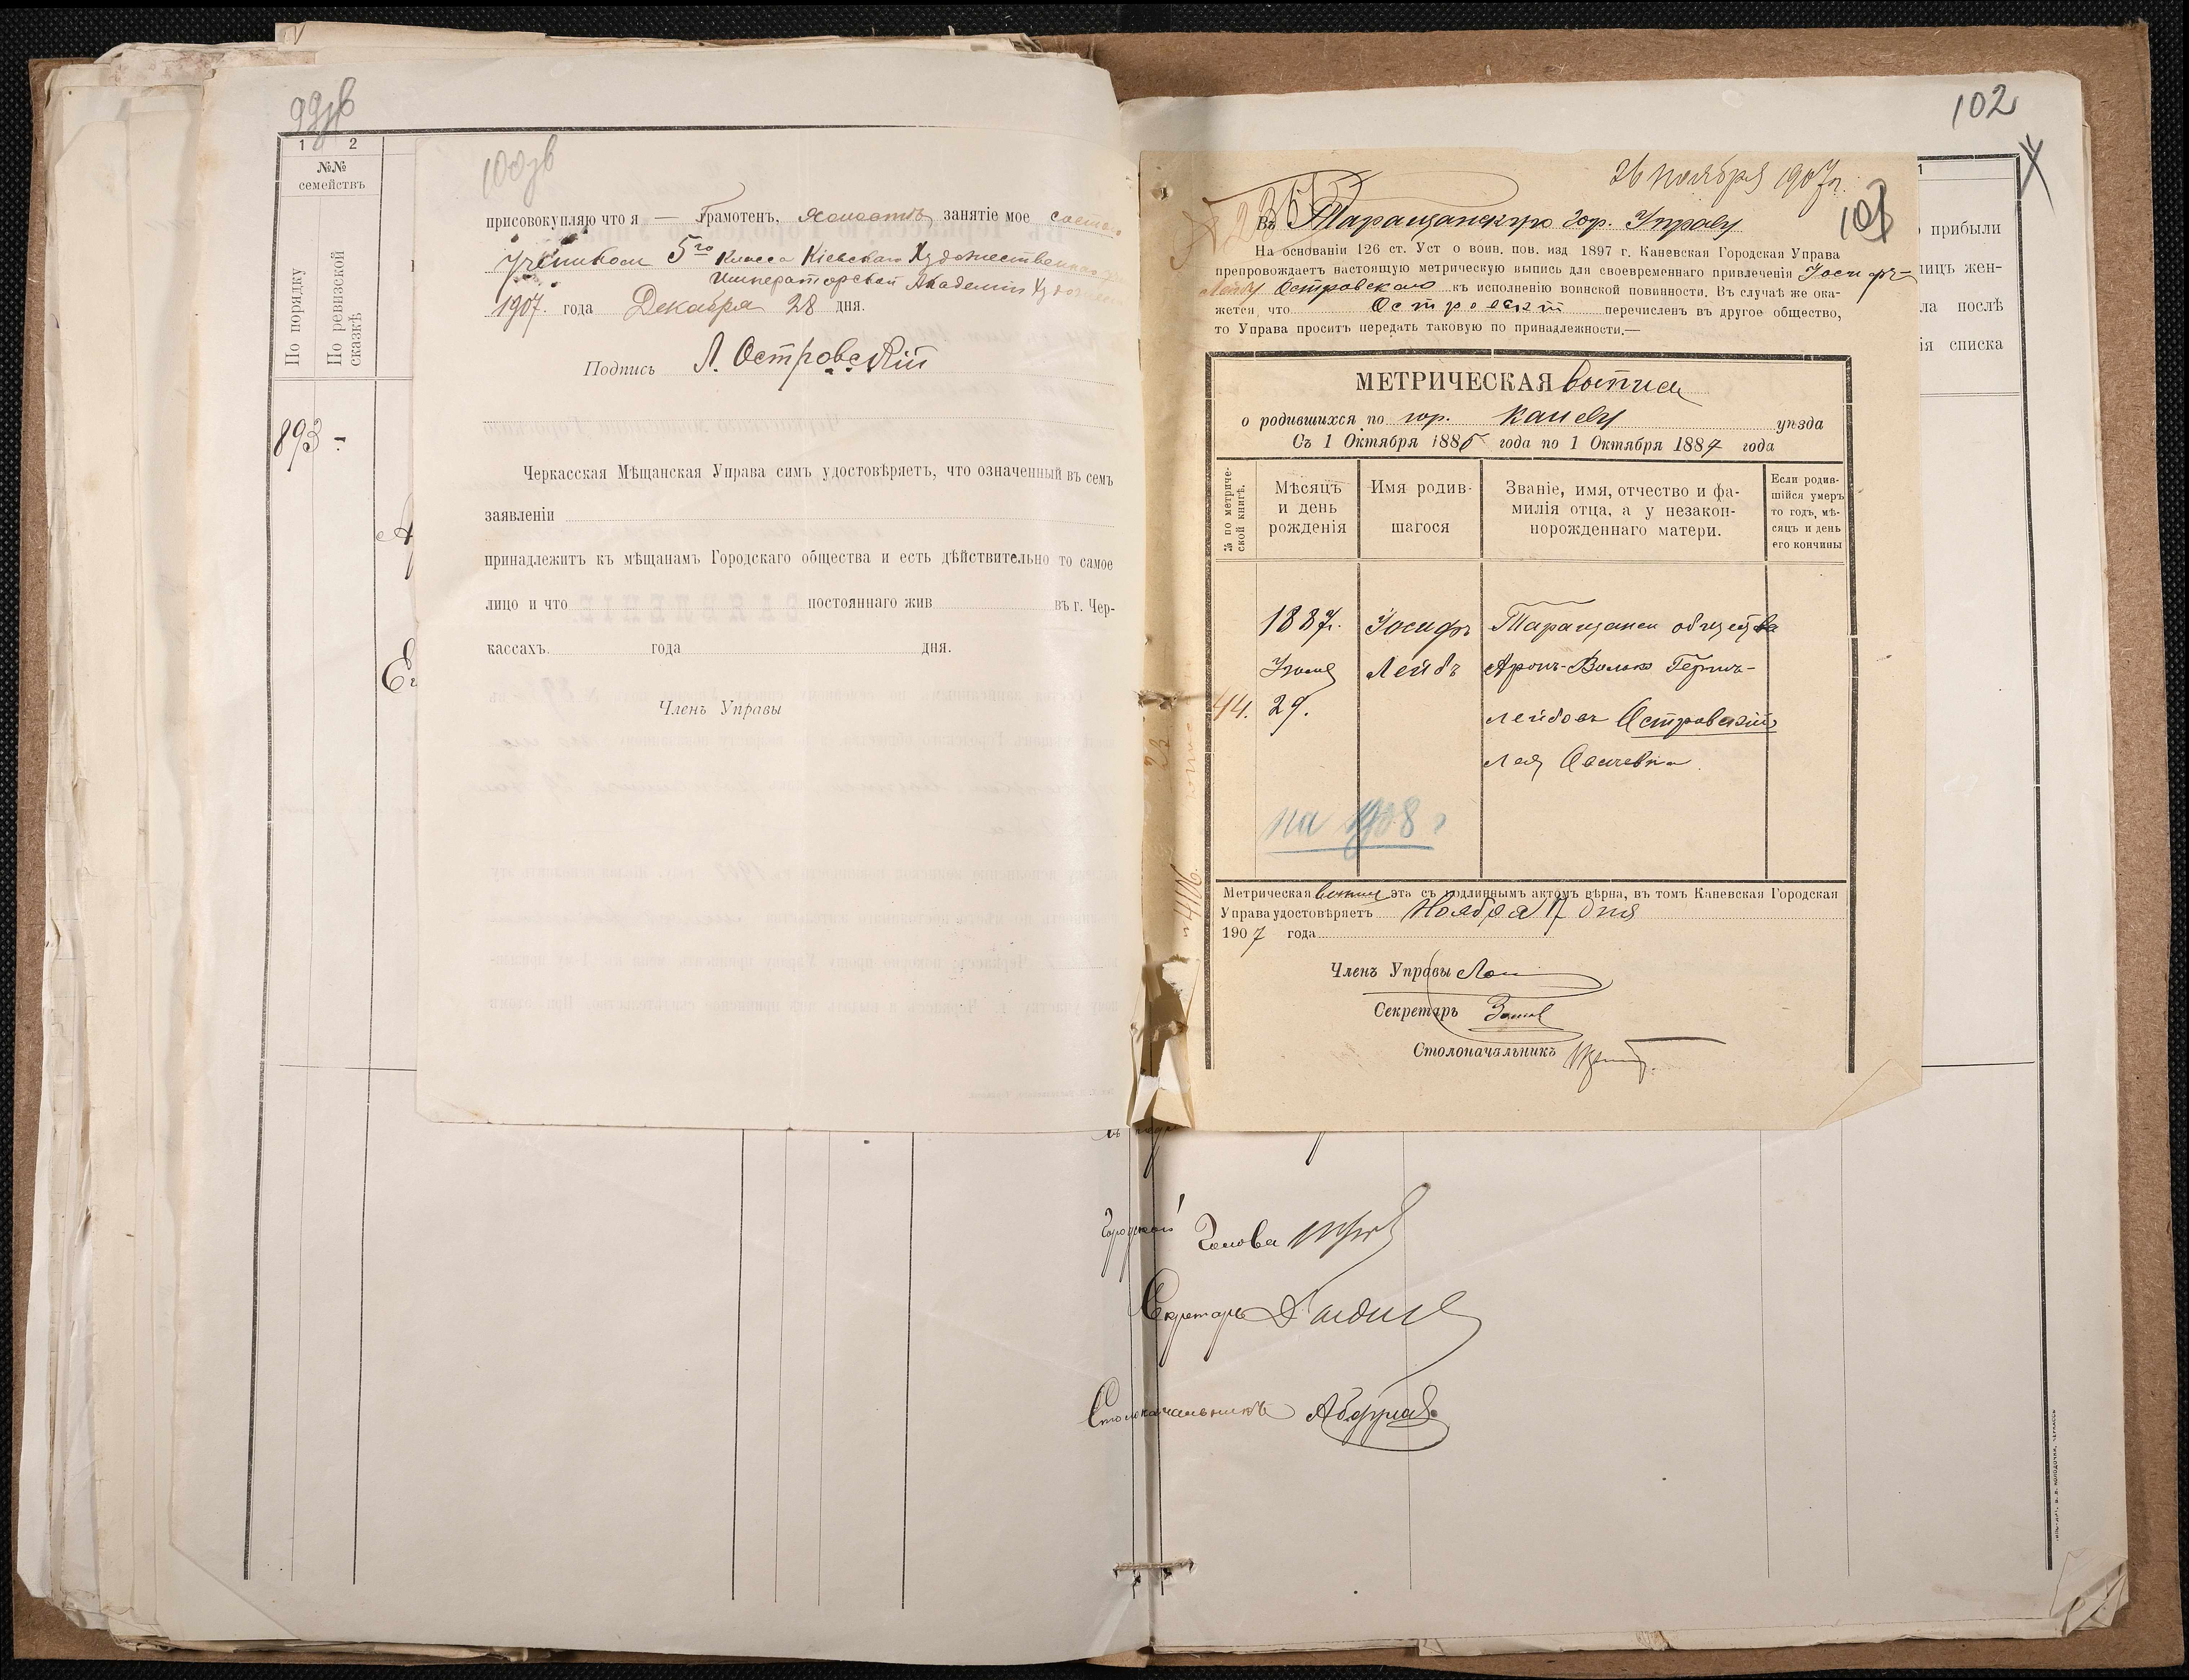 99зв
1 2
№№
семействъ
По порядку
По ревизской
сказкѣ
893 -
100зв
присовокупляю что я — Грамотенъ, холостъ занятіе мое состою
Ученикомъ 5го класса Кіевскаго Художественнаго
Императорской Академіи
1907. года Декабря 28 дня.
Подпись Л. Островскій
Черкасская Мѣщанская Управа симъ удостовѣряетъ, что означенный въ семъ
заявленіи
принадлежитъ къ мѣщанамъ Городскаго общества и есть дѣйствительно то самое
лицо и что постояннаго жив въ г. Чер-
кассахъ. года дня.
Членъ Управы
102
26 ноября 1907 г.
101
Въ Таращанскую гор. Управу
На основаніи 126 ст. Уст о воин. пов. изд 1897 г. Каневская Городская Управа
препровождаетъ настоящую метрическую выпись для своевременнаго привлеченія Іосифъ-
Лейбу Островскаго къ исполненію воинской повинности. Въ случаѣ же ока-
жется, что Островскій перечисленъ въ другое общество,
то Управа проситъ передать таковую по принадлежности.—
МЕТРИЧЕСКАЯ выпись
о родившихся по гор. Каневу уѣзда
Съ 1 Октября 1886 года по 1 Октября 1887 года
№ по метриче-
ской книгѣ.
Мѣсяцъ
и день
рожденія
Имя родив-
шагося
Званіе, имя, отчество и фа-
милія отца, а у незакон-
норожденнаго матери.
Если родив-
шійся умеръ
то годъ, мѣ-
сяцъ и день
его кончины
1887г. Іосифъ Таращанск общества
Іюля Лейбъ Аронъ-Волько Гершъ-
44. 29. Лейбовъ Островскій
Лея
на 1908 г
Метрическая выпись эта съ подлиннымъ актомъ вѣрна, въ томъ Каневская Городская
Управа удостовѣряетъ Ноября 17 дня
1907 года
Членъ Управы
Секретарь
Столоначальникъ
№ 4106.
1
прибыли
лицъ жен-
ла послѣ
ія списка
Городской Голова
Секретарь
Столоначальникъ